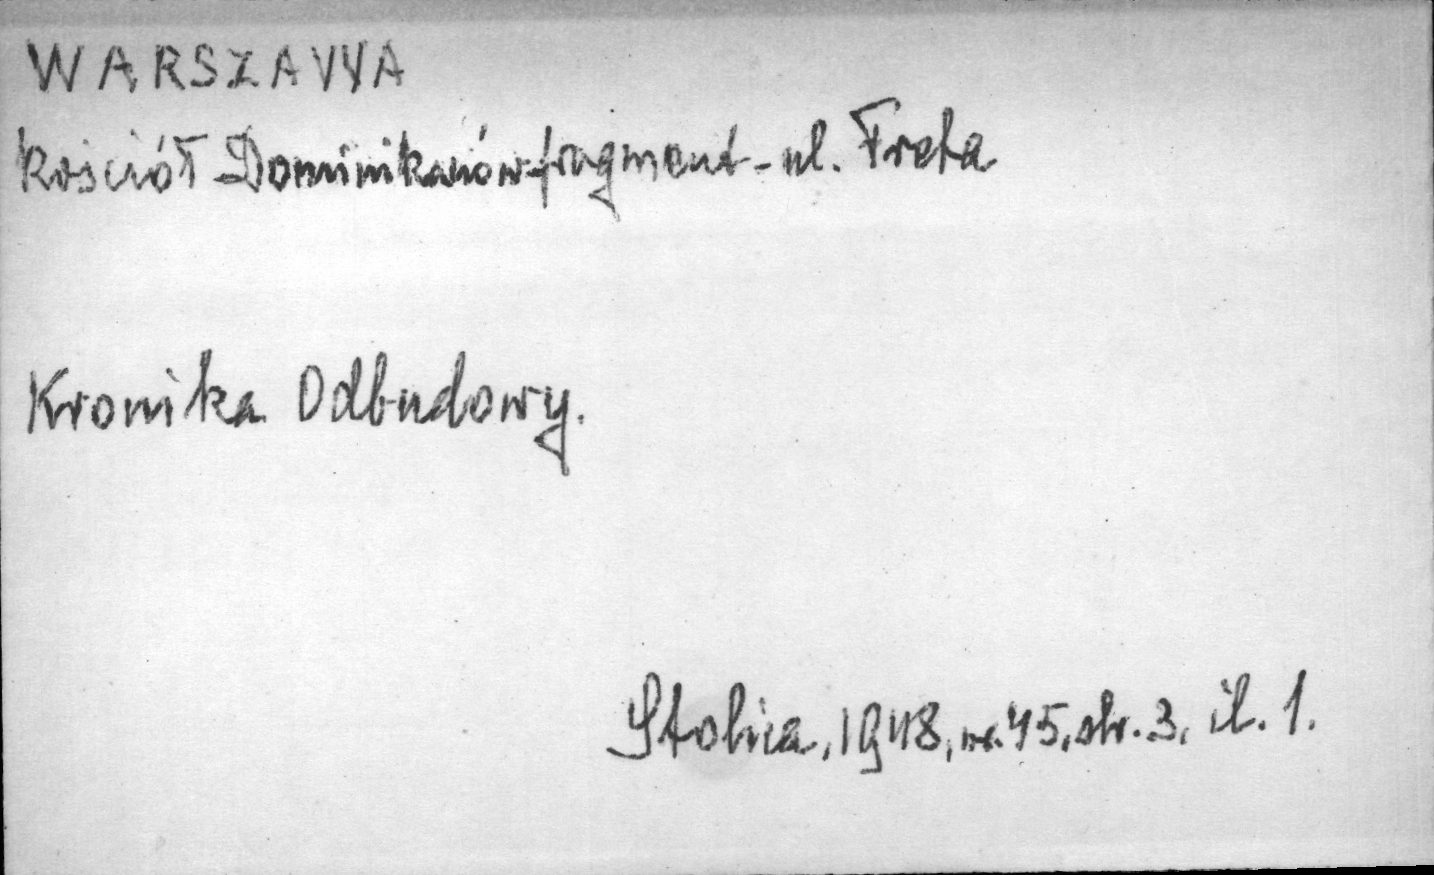 WARSZAWA
Kościół Dominikanów-fragment-ul. Freta
Kronika Odbudowy.
Stolica, 1948, nr. 45, str. 3, il. 1.